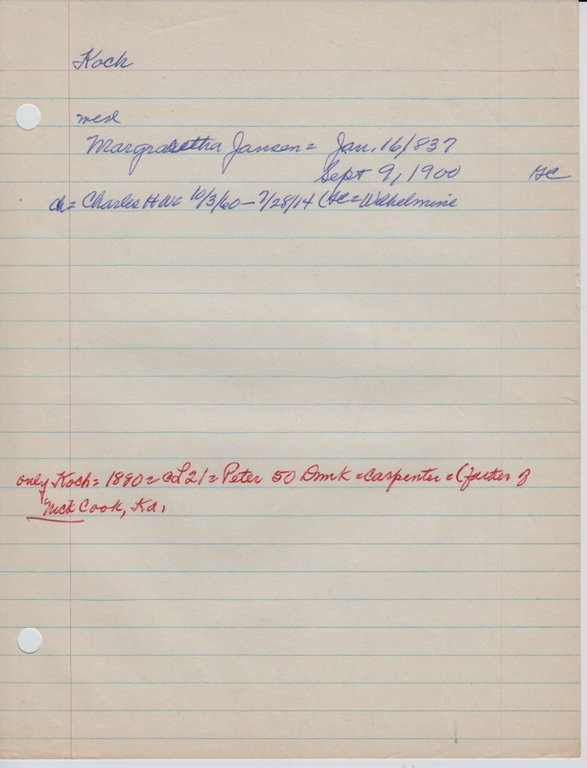 Koch
med
Margraretha Jansen = Jan. 16/837
Sept 9, 1900 HC
ch = Charles H W = 10/3/60 - 7/28/14 (HC = Wilhelmine
only Koch = 1880 = CL21 = Peter 50 Dnmk = carpenter = (father of
Nick Cook, Ka,